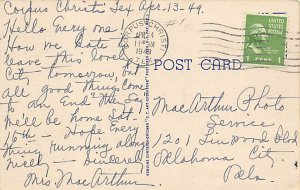 Corpus Christi Tex Apr. 13-49.
Hello Every one!
How we hate to
leave this lovely
City tomorrow, but
all good things come
to an End they say
We'll be home Sat.
16th - Hope Every
thing running along
nicely - Sincerely
Mrs. MacArthur.
#1
CORPUS CHRISTI
APR 14
11 AM
1949
TEX
1 CENT 1
POST CARD
MacArthur Photo
Service
1201 Linwood Blvd
Oklahoma City,
Okla.